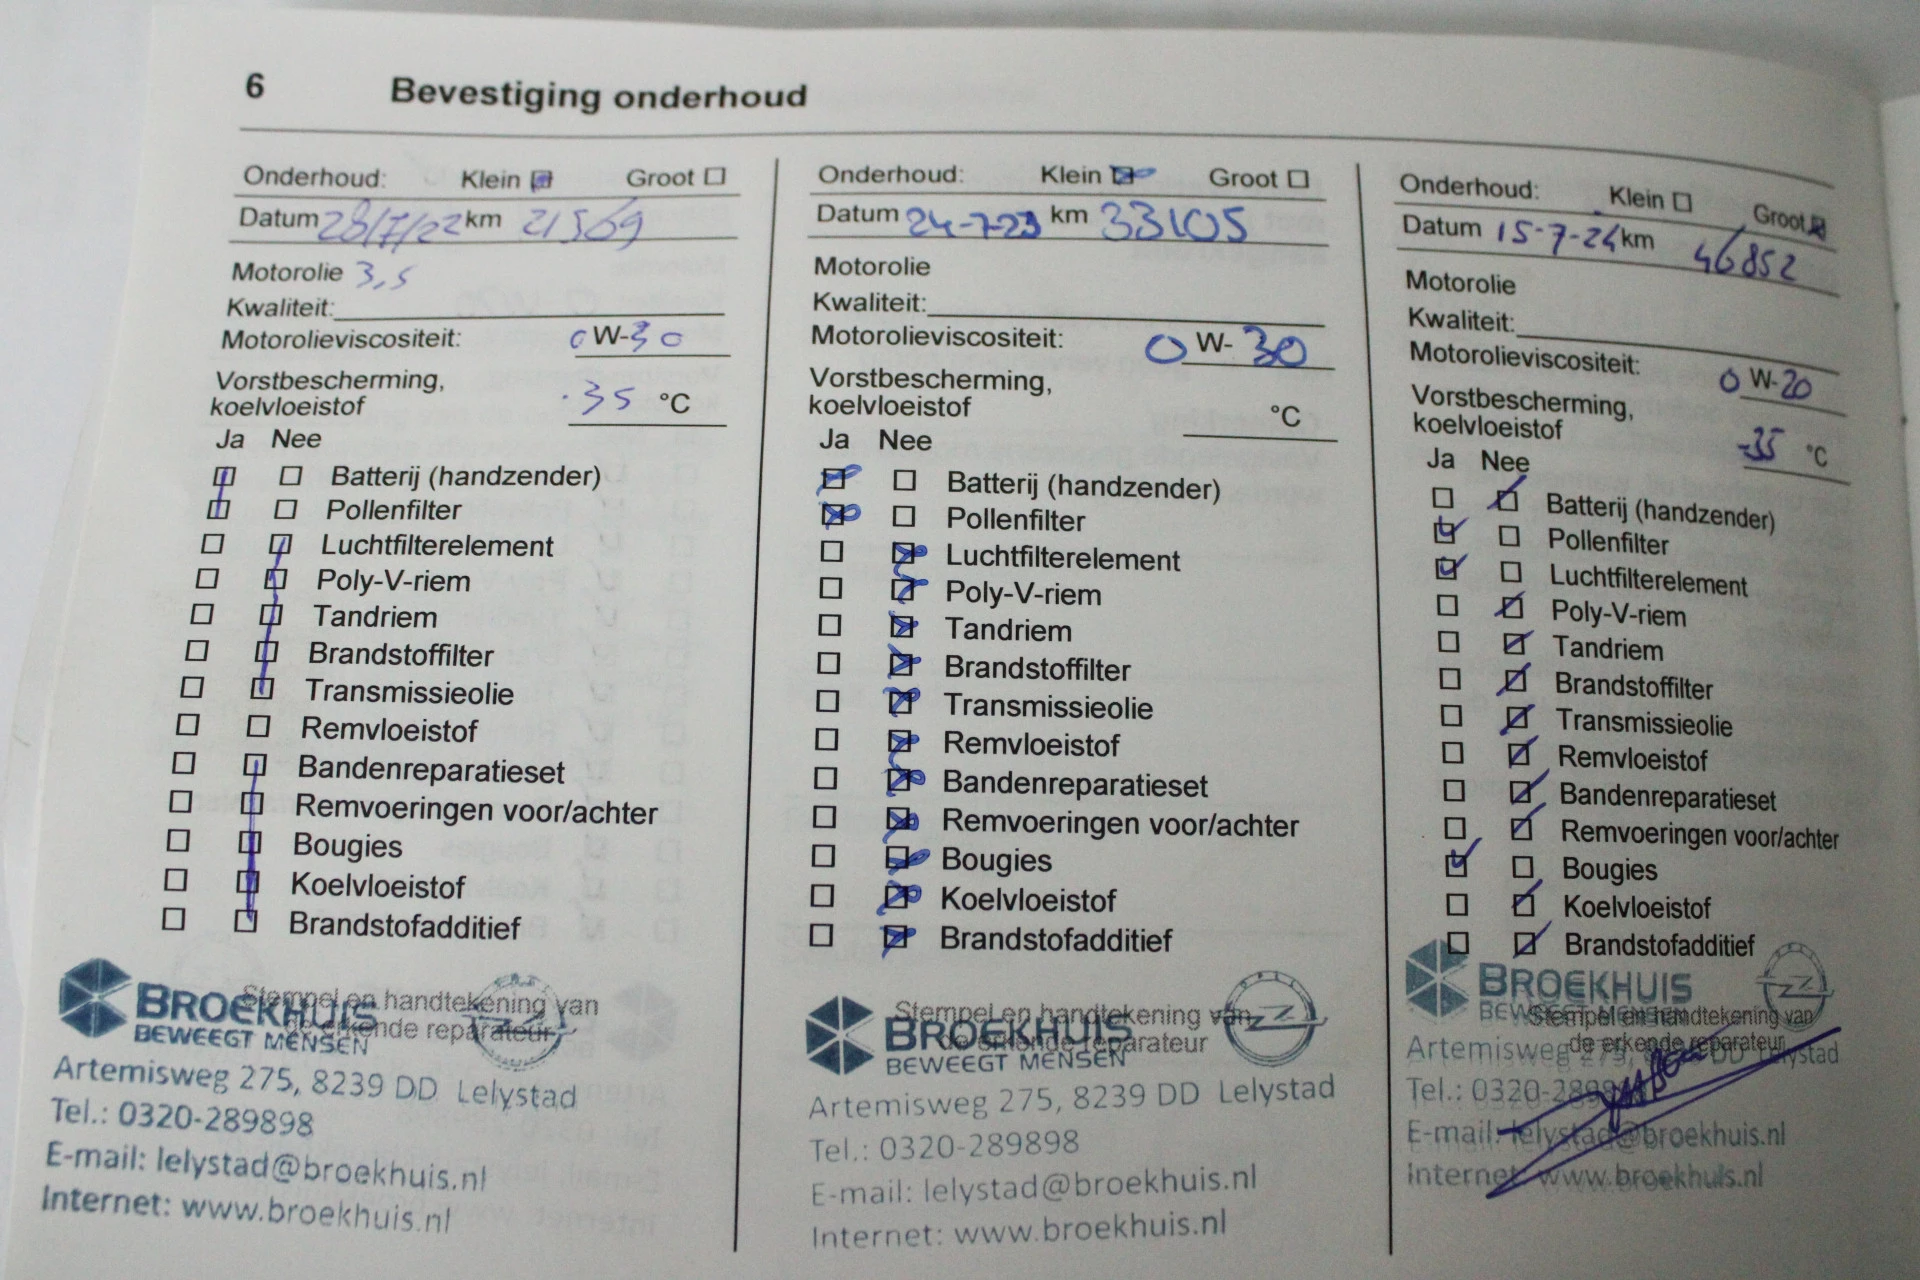 6 Bevestiging onderhoud
Onderhoud: Klein Groot
Datum 28/7/22 km 21569
Motorolie 3,5
Kwaliteit:
Motorolieviscositeit: 0 W-30
Vorstbescherming,
koelvloeistof -35 °C
Ja Nee
Batterij (handzender)
Pollenfilter
Luchtfilterelement
Poly-V-riem
Tandriem
Brandstoffilter
Transmissieolie
Remvloeistof
Bandenreparatieset
Remvoeringen voor/achter
Bougies
Koelvloeistof
Brandstofadditief
Stempel en handtekening van
de erkende reparateur
BROEKHUIS
BEWEEGT MENSEN
Artemisweg 275, 8239 DD Lelystad
Tel.: 0320-289898
E-mail: lelystad@broekhuis.nl
Internet: www.broekhuis.nl
Onderhoud: Klein Groot
Datum 24-7-23 km 33105
Motorolie
Kwaliteit:
Motorolieviscositeit: 0 W-30
Vorstbescherming,
koelvloeistof °C
Ja Nee
Batterij (handzender)
Pollenfilter
Luchtfilterelement
Poly-V-riem
Tandriem
Brandstoffilter
Transmissieolie
Remvloeistof
Bandenreparatieset
Remvoeringen voor/achter
Bougies
Koelvloeistof
Brandstofadditief
Stempel en handtekening van
de erkende reparateur
BROEKHUIS
BEWEEGT MENSEN
Artemisweg 275, 8239 DD Lelystad
Tel.: 0320-289898
E-mail: lelystad@broekhuis.nl
Internet: www.broekhuis.nl
Onderhoud: Klein Groot
Datum 15-7-24 km 46852
Motorolie
Kwaliteit:
Motorolieviscositeit: 0 W-20
Vorstbescherming,
koelvloeistof -35 °C
Ja Nee
Batterij (handzender)
Pollenfilter
Luchtfilterelement
Poly-V-riem
Tandriem
Brandstoffilter
Transmissieolie
Remvloeistof
Bandenreparatieset
Remvoeringen voor/achter
Bougies
Koelvloeistof
Brandstofadditief
Stempel en handtekening van
de erkende reparateur
BROEKHUIS
BEWEEGT MENSEN
Artemisweg 275, 8239 DD Lelystad
Tel.: 0320-289898
E-mail: lelystad@broekhuis.nl
Internet: www.broekhuis.nl